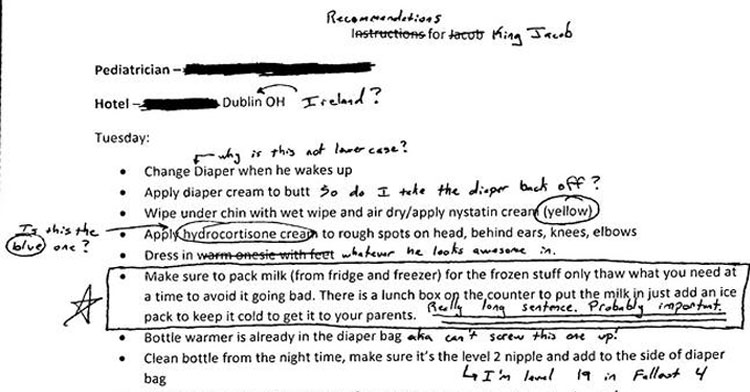 Recommendations
Instructions for Jacob King Jacob
Pediatrician –
Hotel – Dublin OH Ireland?
Tuesday:
why is this not lower case?
• Change Diaper when he wakes up
• Apply diaper cream to butt So do I take the diaper back off?
• Wipe under chin with wet wipe and air dry/apply nystatin cream (yellow)
Is this the blue one?
• Apply hydrocortisone cream to rough spots on head, behind ears, knees, elbows
• Dress in warm onesie with feet whatever he looks awesome in.
• Make sure to pack milk (from fridge and freezer) for the frozen stuff only thaw what you need at
a time to avoid it going bad. There is a lunch box on the counter to put the milk in just add an ice
pack to keep it cold to get it to your parents. Really long sentence. Probably important.
• Bottle warmer is already in the diaper bag aka can't screw this one up!
• Clean bottle from the night time, make sure it's the level 2 nipple and add to the side of diaper
bag I'm level 19 in Fallout 4